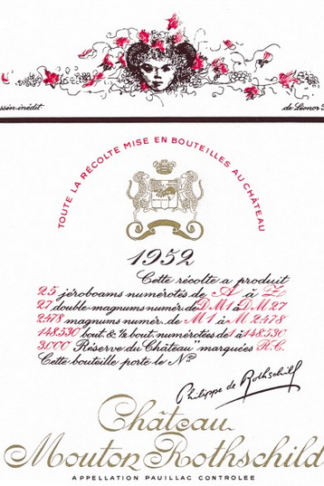 ssin inédit
de Léonor
TOUTE LA RÉCOLTE MISE EN BOUTEILLES AU CHÂTEAU
1952
Cette récolte a produit
25 jéroboams numérotés de A à Z
27 double magnums numér. de D.M1 à D.M 27
2.478 magnums numér. de M1 à M 2.478
148.530 bout. & ½ bout. numérotées de 1 à 148.530
3.000 "Réserve du Château" marquées R.C.
Cette bouteille porte le No
Philippe de Rothschild
Château
Mouton Rothschild
APPELLATION PAUILLAC CONTROLÉE